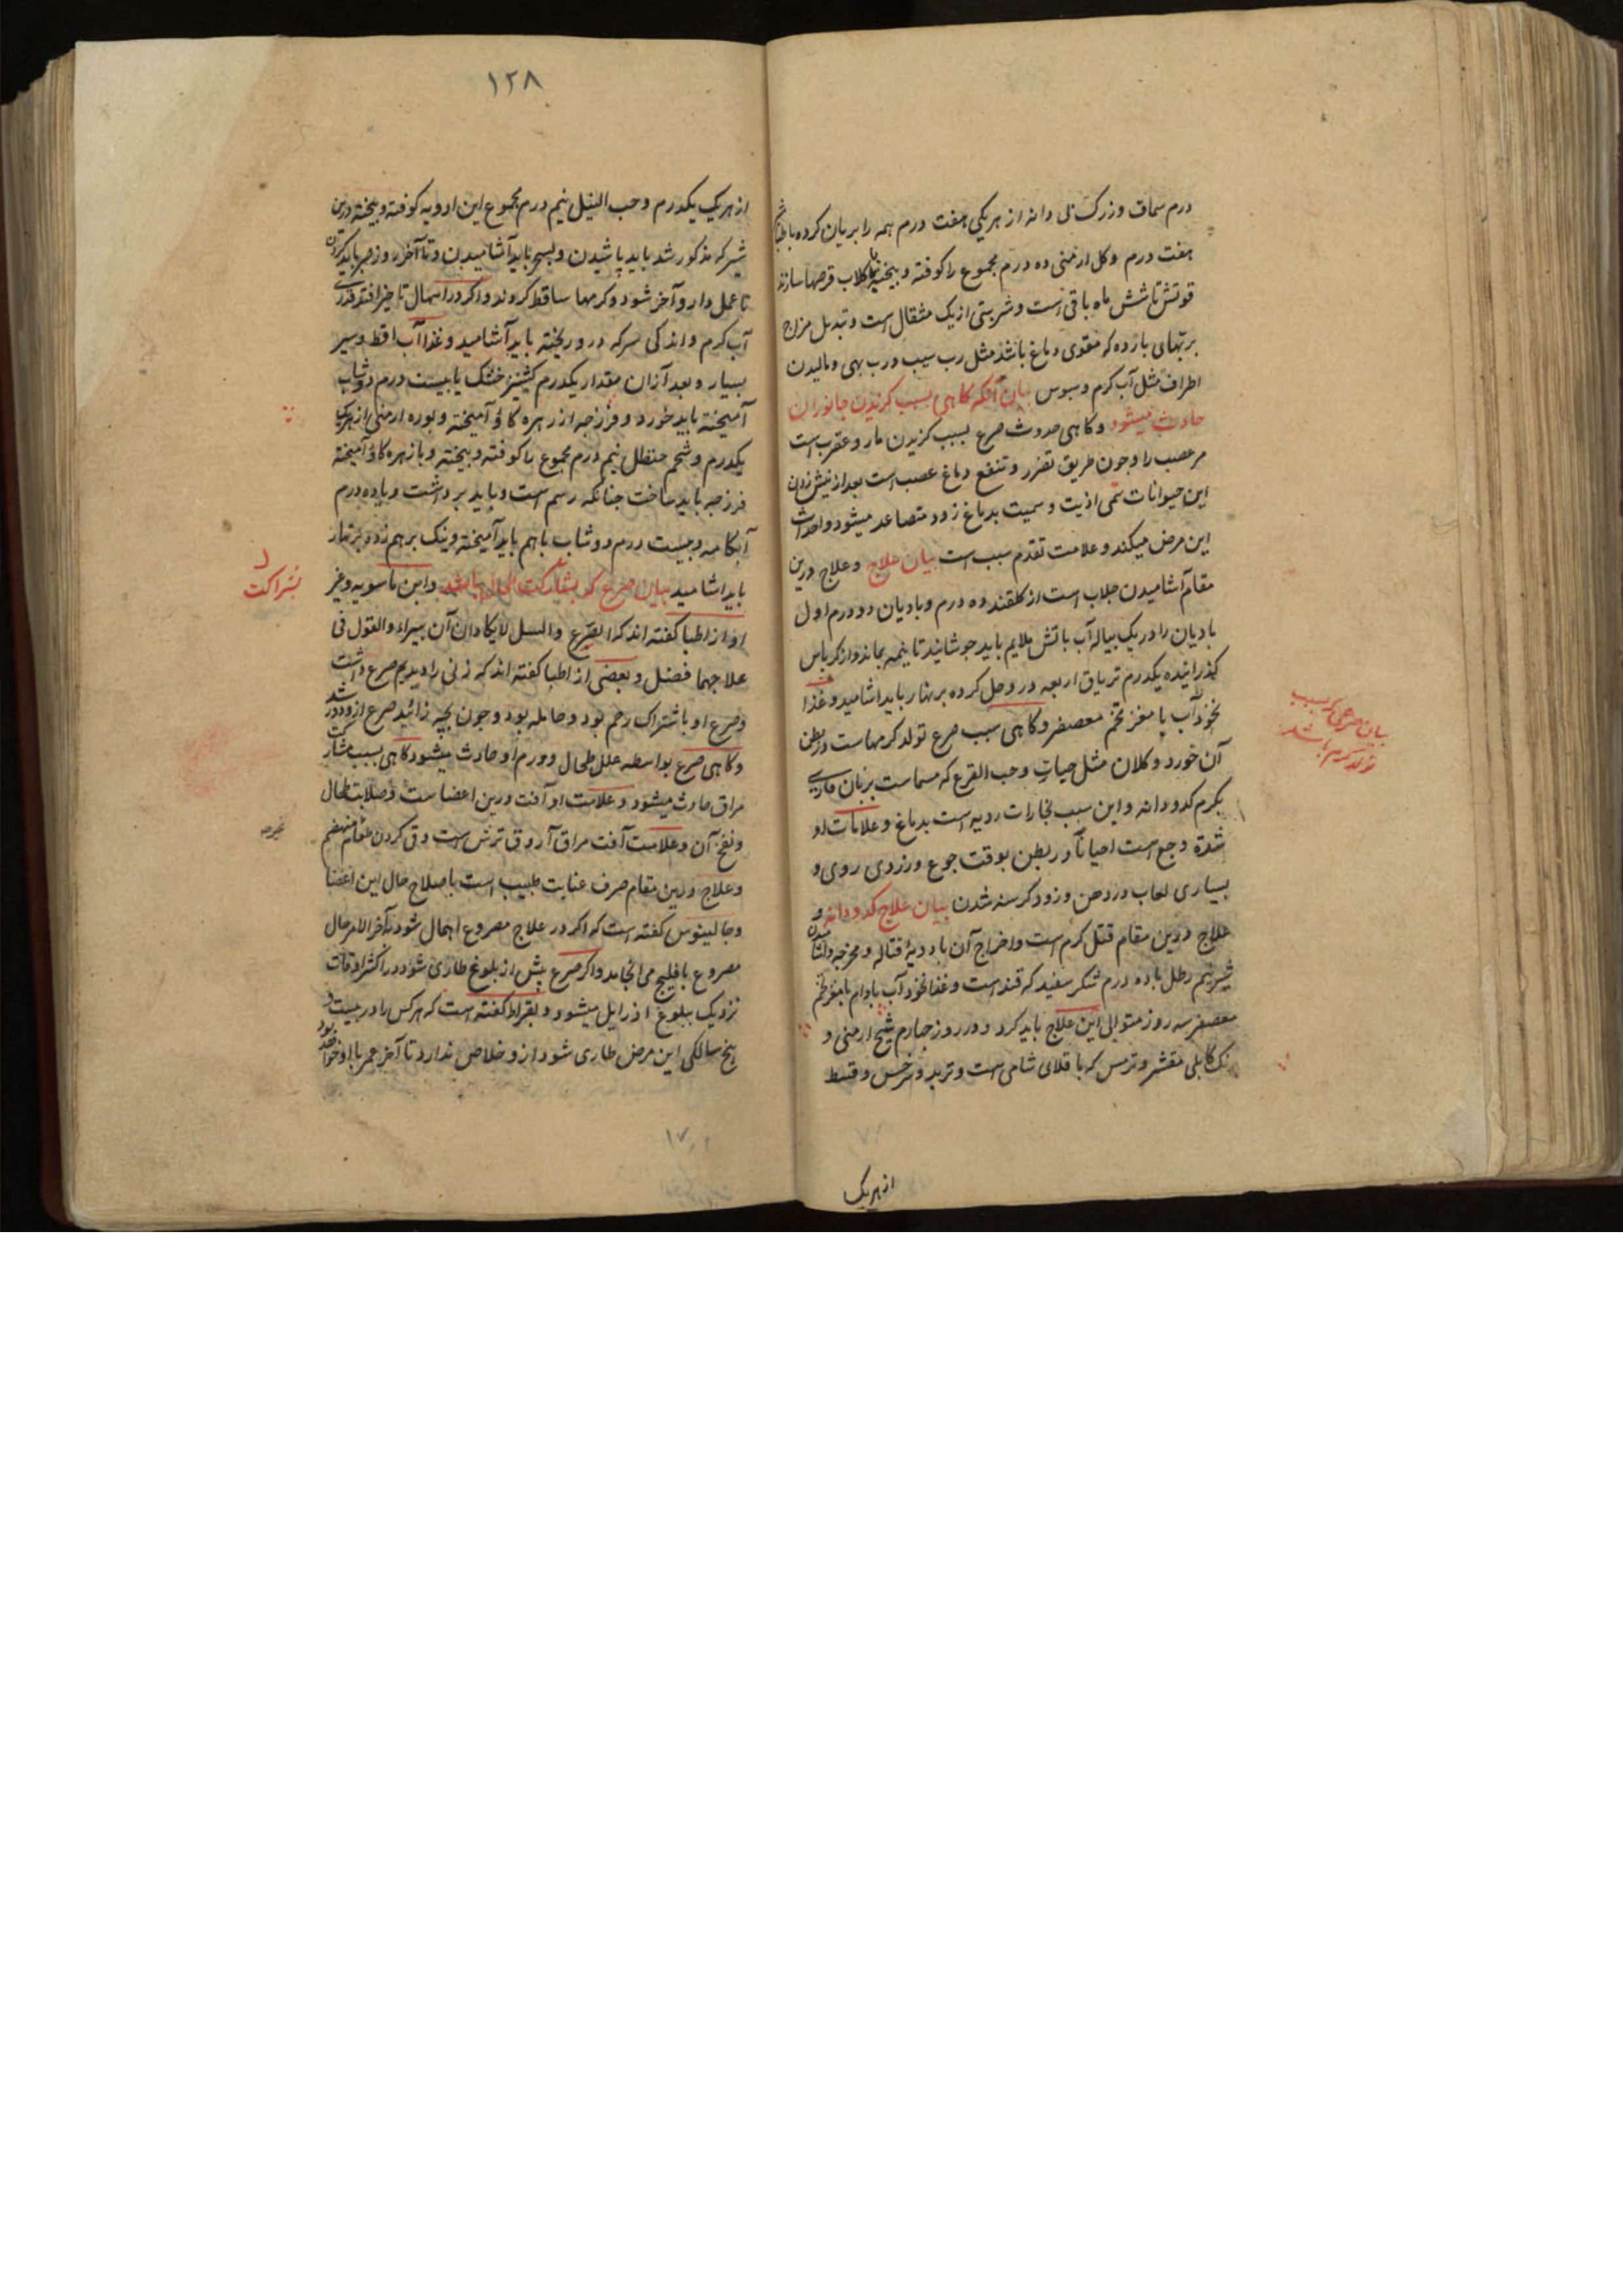 درم سماق و زرشک بی دانه از هریکی هفت درم همه را بریان کرده باطباشیر
هفت درم و کل ارمنی ده درم مجموع را کوفته و بیخته با کلاب قرصها سازند
قوتش تا شش ماه باقی است و شربتی از یک مثقال است و تبدیل مزاج
بربهای بارده که مقوی دماغ باشد مثل رب سیب و رب بهی و مالیدن
اطراف مثل آب کرم و سبوس بیان آنکه کاهی بسبب کزیدن جانوران
حادث میشود و کاهی حدوث صرع بسبب کزیدن مار و عقرب است
مر عصب را و جون طریق تضرر و تنفع دماغ عصب است بعد از نیش زدن
این حیوانات سمی اذیت و سمیت بدماغ زود متصاعد میشود و احداث
این مرض میکند و علامت تقدم سبب است بیان علاج و علاج درین
مقام آشامیدن جلاب است از کلقند ده درم و بادیان دو درم اول
بادیان را در یک پیاله آب باتش ملایم باید جوشانید تا نیمه بماند و از کرباس
کذرانیده یکدرم تریاق اربعه درو حل کرده بر نهار باید اشامید و غذا
نخود آب با مغز تخم معصفر و کاهی سبب صرع تولد کرمهاست در بطن
آن خورد و کلان مثل حیات و حب القرع که مسماست بزبان فارسی
بکرم کدودانه و این سبب بخارات ردیه است بدماغ و علامات او
شدة وجع است احیاناً در بطن بوقت جوع و زردی روی و
بسیاری لعاب در دهن و زود کرسنه شدن بیان علاج کدودانه و
علاج درین مقام قتل کرم است و اخراج آن بادویهٔ قتاله و مخرجه و آشامیدن
شیر نیم رطل با ده درم شکر سفید که قند است و غذا نخود آب بادام با مغز تخم
معصفر سه روز متوالی این علاج باید کرد و در روز جهارم شیح ارمنی و
کابلی مقشر و ترمس که باقلای شامی است و تربد و سرخس و قسط
از هریک
بیان صرعی که بسبب
تولد کرم باشد
۱۲۸
از هریک یکدرم و حب النیل نیم درم مجموع این ادویه کوفته و بیخته درین
شیر که مذکور شد باید پاشیدن و بسحر باید آشامیدن و تا آخر روز صبر باید کردن
تا عمل دارو آخر شود و کرمها ساقط کردند و اکر در اسهال تاخیر افتد قدری
آب کرم و اندکی سرکه درو ریخته باید آشامید و غذا آب اقط و سیر
بسیار و بعد از آن مقدار یکدرم کشنیز خشک با بیست درم دوشاب
آمیخته باید خورد و فرزجه از زهره کاؤ آمیخته و بوره ارمنی از هریک
یکدرم و شحم حنظل نیم درم مجموع را کوفته و بیخته و با زهره کاؤ آمیخته
فرزجه باید ساخت جنانکه رسم است و باید برداشت و با ده درم
آبکامه و بیست درم دوشاب باهم باید آمیخته و نیک برهم زده بر نهار
باید اشامید بیان صرع که بمشارکت طحال باشد و ابن ماسویه و غیر
او از اطبا کفته اند که الصرع والسل لایکادان آن یبراء والقول فی
علاجهما فضل و بعضی از اطبا کفته اند که زنی را دیدیم صرع داشت
و صرع او باشتراک رحم بود و حامله بود و جون بچه زائید صرع ازو دور شد
و کاهی صرع بواسطه علل طحال و ورم او حادث میشود و کاهی بسبب مشارکت
مراق حادث میشود و علامت او آفت درین اعضاست و صلابت طحال
و نفخ آن و علامت آفت مراق آروق ترش است و قی کردن طعام منهضم
و علاج درین مقام صرف عنایت طبیب است باصلاح حال این اعضا
و جالینوس کفته است که اکر در علاج مصروع اهمال شود بآخر الامر حال
مصروع با فلیج می انجامد و اکر صرع پیش از بلوغ طاری شود در اکثر اوقات
نزدیک ببلوغ زایل میشود و بقراط کفته است که هرکس را در بیست و
پنج سالکی این مرض طاری شود ازو خلاص ندارد تا آخر عمر با او خواهد بود